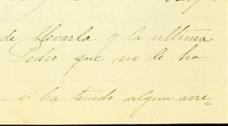 de llevarla y la ultima
Pedro que no le ha
si ha tenido algun arre-